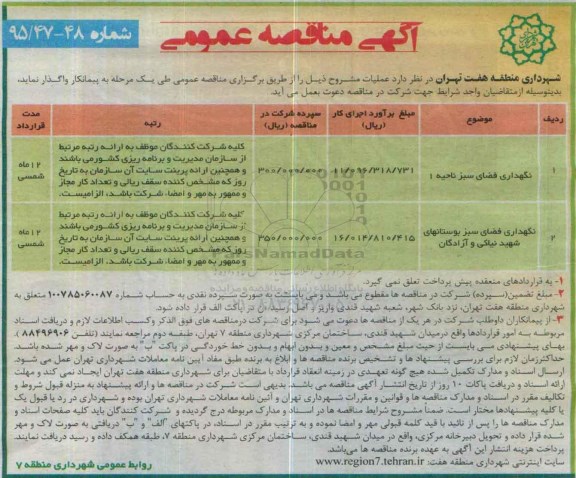 آگهی مناقصه عمومی
شماره ۴۸-۹۵/۴۷
شهرداری منطقه هفت تهران در نظر دارد عملیات مشروح ذیل را از طریق برگزاری مناقصه عمومی طی یک مرحله به پیمانکار واگذار نماید،
بدینوسیله از متقاضیان واجد شرایط جهت شرکت در مناقصه دعوت بعمل می آید.
ردیف موضوع مبلغ برآورد اجرای کار (ریال) سپرده شرکت در مناقصه (ریال) رتبه مدت قرارداد
۱ نگهداری فضای سبز ناحیه ۱ ۳۱۸/۷۳۱ ۳۰۰/۰۰۰/۰۰۰ ۱۲ماه شمسی
کلیه شرکت کنندگان موظف به ارائه رتبه مرتبط
از سازمان مدیریت و برنامه ریزی کشور می باشند
و همچنین ارائه پرینت سایت آن سازمان به تاریخ
روز که مشخص کننده سقف ریالی و تعداد کار مجاز
و ممهور به مهر و امضاء شرکت باشد، الزامیست.
۲ نگهداری فضای سبز بوستانهای شهید نیاکی و آزادگان ۱۶/۰۱۴/۸۱۰/۴۱۵ ۳۵۰/۰۰۰/۰۰۰ ۱۲ماه شمسی
کلیه شرکت کنندگان موظف به ارائه رتبه مرتبط
از سازمان مدیریت و برنامه ریزی کشور می باشند
و همچنین ارائه پرینت سایت آن سازمان به تاریخ
روز که مشخص کننده سقف ریالی و تعداد کار مجاز
و ممهور به مهر و امضاء شرکت باشد، الزامیست.
۱- به قراردادهای منعقده پیش پرداخت تعلق نمی گیرد.
۲- مبلغ تضمین(سپرده) شرکت در مناقصه ها مقطوع می باشد و می بایست به صورت سپرده نقدی به حساب شماره ۱۰۰۷۸۵۰۶۰۰۸۷ متعلق به
شهرداری منطقه هفت تهران، نزد بانک شهر، شعبه شهید قندی واریز و اصل رسید آن در پاکت الف قرار داده شود.
۳- از پیمانکاران داوطلب شرکت در هر یک از مناقصه ها دعوت می شود برای شرکت در مناقصه های فوق الذکر و کسب اطلاعات لازم و دریافت اسناد
مربوطه به امور قراردادها واقع در میدان شهید قندی، ساختمان مرکزی شهرداری منطقه ۷ تهران، طبقه دوم مراجعه نمایند (تلفن ۸۸۴۹۶۹۰۶)
بهای پیشنهادی می بایست از حیث مبلغ مشخص و معین و بدون ابهام و بدون خط خوردگی در پاکت "پ" به صورت لاک و مهر شده باشد.
حداکثر زمان لازم برای بررسی پیشنهاد ها و تشخیص برنده مناقصه ها و ابلاغ به برنده طبق مفاد آیین نامه معاملات شهرداری تهران عمل می شود.
ارسال اسناد و مدارک تکمیل شده هیچ گونه تعهدی در زمینه انعقاد قرارداد با متقاضیان برای شهرداری منطقه هفت تهران ایجاد نمی کند و مهلت
ارائه اسناد و دریافت پاکات ۱۰ روز از تاریخ انتشار آگهی مناقصه می باشد. بدیهی است شرکت در مناقصه ها و ارائه پیشنهاد به منزله قبول شروط و
تکالیف مقرر در اسناد و مدارک مناقصه ها و قوانین و مقررات شهرداری تهران و آئین نامه معاملات شهرداری تهران بوده و شهرداری در رد یا قبول یک
یا کلیه پیشنهادها مختار است. ضمناً مشروح شرایط مناقصه ها در اسناد و مدارک مربوطه درج گردیده و شرکت کنندگان باید کلیه صفحات اسناد و
مدارک مناقصه ها را پس از تائید با قید کلمه قبولی مهر و امضا نموده و به ترتیب مقرر در اسناد، در پاکتهای "الف" و "ب" دریافتی به صورت لاک و مهر
شده قرار داده و تحویل دبیرخانه مرکزی، واقع در میدان شهید قندی، ساختمان مرکزی شهرداری منطقه ۷، طبقه همکف داده و رسید دریافت نمایند.
پرداخت هزینه انتشار این آگهی به عهده برنده مناقصه ها می باشد.
سایت اینترنتی شهرداری منطقه هفت: www.region7.tehran.ir
روابط عمومی شهرداری منطقه ۷